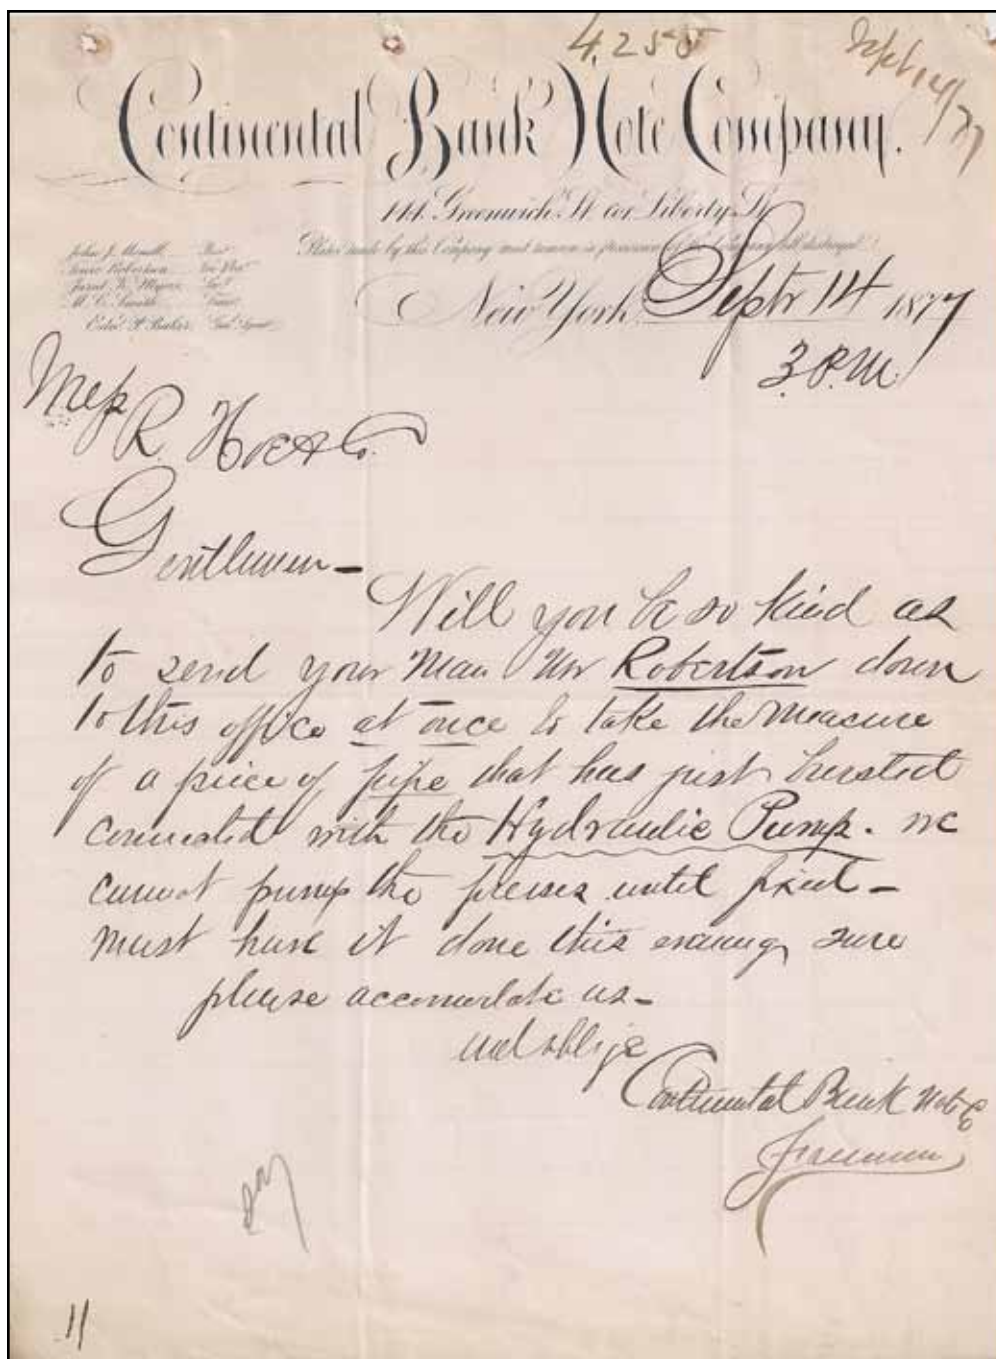 4,255
Sept 14/77
Continental Bank Note Company.
141 Greenwich St. cor. Liberty St.
Plates made by this Company and remain in possession of the Company till destroyed
John J. Merrill Prest
Robertson Vice Prest
Jared K. Myers Sec.
M. C. Smith Treas
Edw. P. Baker Genl Agent
New York, Septr 14 1877
3 P.M.
Mess
R. Hoe & Co.
Gentlemen –
Will you be so kind as
to send your Man Mr Robertson down
to this office at once to take the measure
of a piece of pipe that has just bursted
connected with the Hydraulic Pump. we
cannot pump the presses until fixed –
must have it done this evening sure
please accomodate us –
and oblige
Continental Bank Note Co
Foreman
11